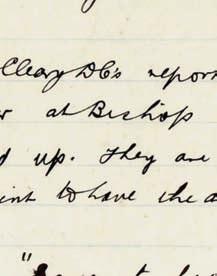 Cleary DC's report
at Bishop
up. They are
to have the a
"